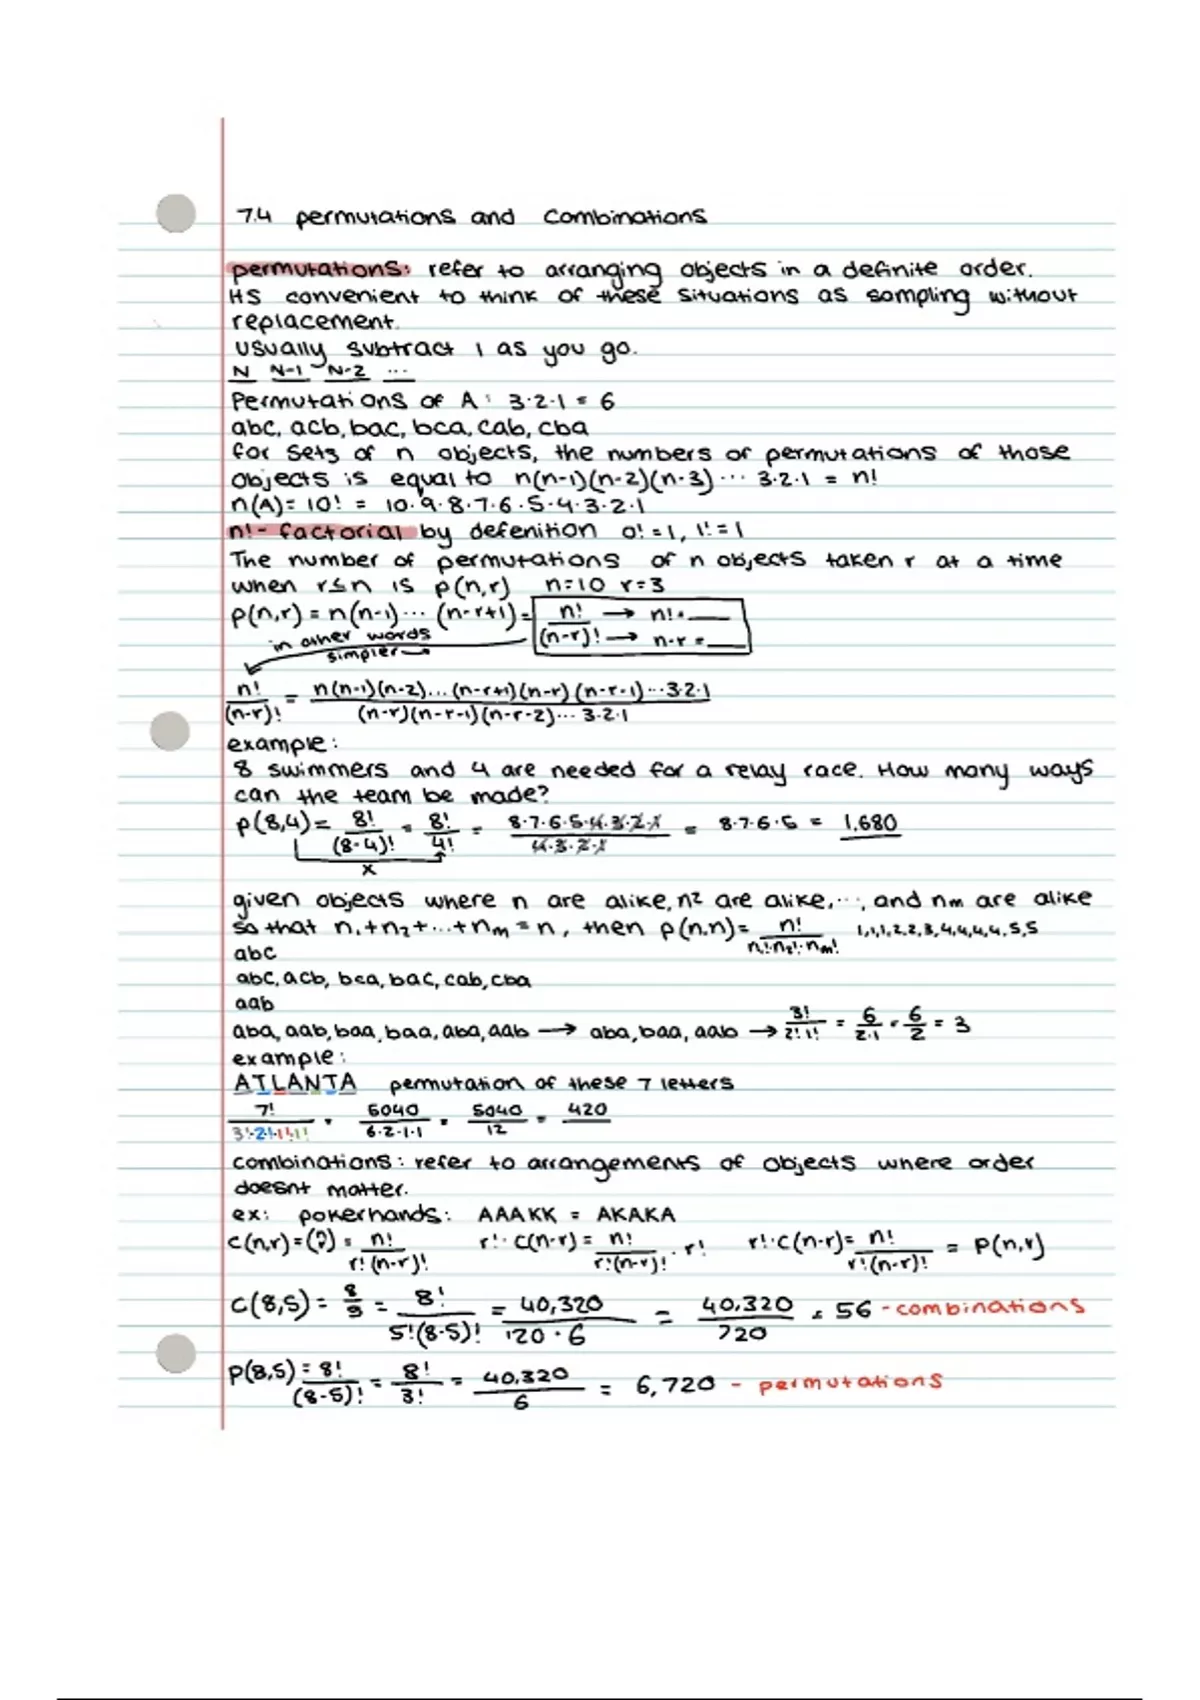 7.4 permutations and combinations
permutations: refer to arranging objects in a definite order.
Its convenient to think of these situations as sampling without
replacement.
usually subtract 1 as you go.
N N-1 N-2 ...
Permutations of A: 3·2·1 = 6
abc, acb, bac, bca, cab, cba
for sets of n objects, the numbers of permutations of those
objects is equal to n(n-1)(n-2)(n-3)... 3·2·1 = n!
n(A) = 10! = 10·9·8·7·6·5·4·3·2·1
n! - factorial by defenition 0! = 1, 1! = 1
The number of permutations of n objects taken r at a time
when r≤n is p(n,r) n=10 r=3
p(n,r) = n(n-1)... (n-r+1) = n!/(n-r)! → n! = ___ → n-r = ___
in other words
simpler
n!/(n-r)! = n(n-1)(n-2)...(n-r+1)(n-r)(n-r-1)...3·2·1 / (n-r)(n-r-1)(n-r-2)... 3·2·1
example:
8 swimmers and 4 are needed for a relay race. How many ways
can the team be made?
p(8,4) = 8!/(8-4)! = 8!/4! = 8·7·6·5·4·3·2·1 / 4·3·2·1 = 8·7·6·5 = 1,680
x
given objects where n are alike, n2 are alike,..., and nm are alike
so that n1+n2+...+nm = n, then p(n,n) = n!/n1!·n2!·nm! 1,1,1,2,2,3,4,4,4,4,5,5
abc
abc, acb, bca, bac, cab, cba
aab
aba, aab, baa, baa, aba, aab → aba, baa, aab → 3!/2!1! = 6/2·1 = 6/2 = 3
example:
ATLANTA permutation of these 7 letters
7!/3!·2!·1!·1! = 5040/6·2·1·1 = 5040/12 = 420
combinations: refer to arrangements of objects where order
doesnt matter.
ex: pokerhands: AAAKK = AKAKA
C(n,r) = (?) = n!/r!(n-r)! r!·C(n-r) = n!/r!(n-r)! · r! r!·C(n-r) = n!/r!(n-r)! = P(n,r)
C(8,5) = 8/5 = 8!/5!(8-5)! = 40,320/120·6 = 40,320/720 = 56 - combinations
P(8,5) = 8!/(8-5)! = 8!/3! = 40,320/6 = 6,720 - permutations